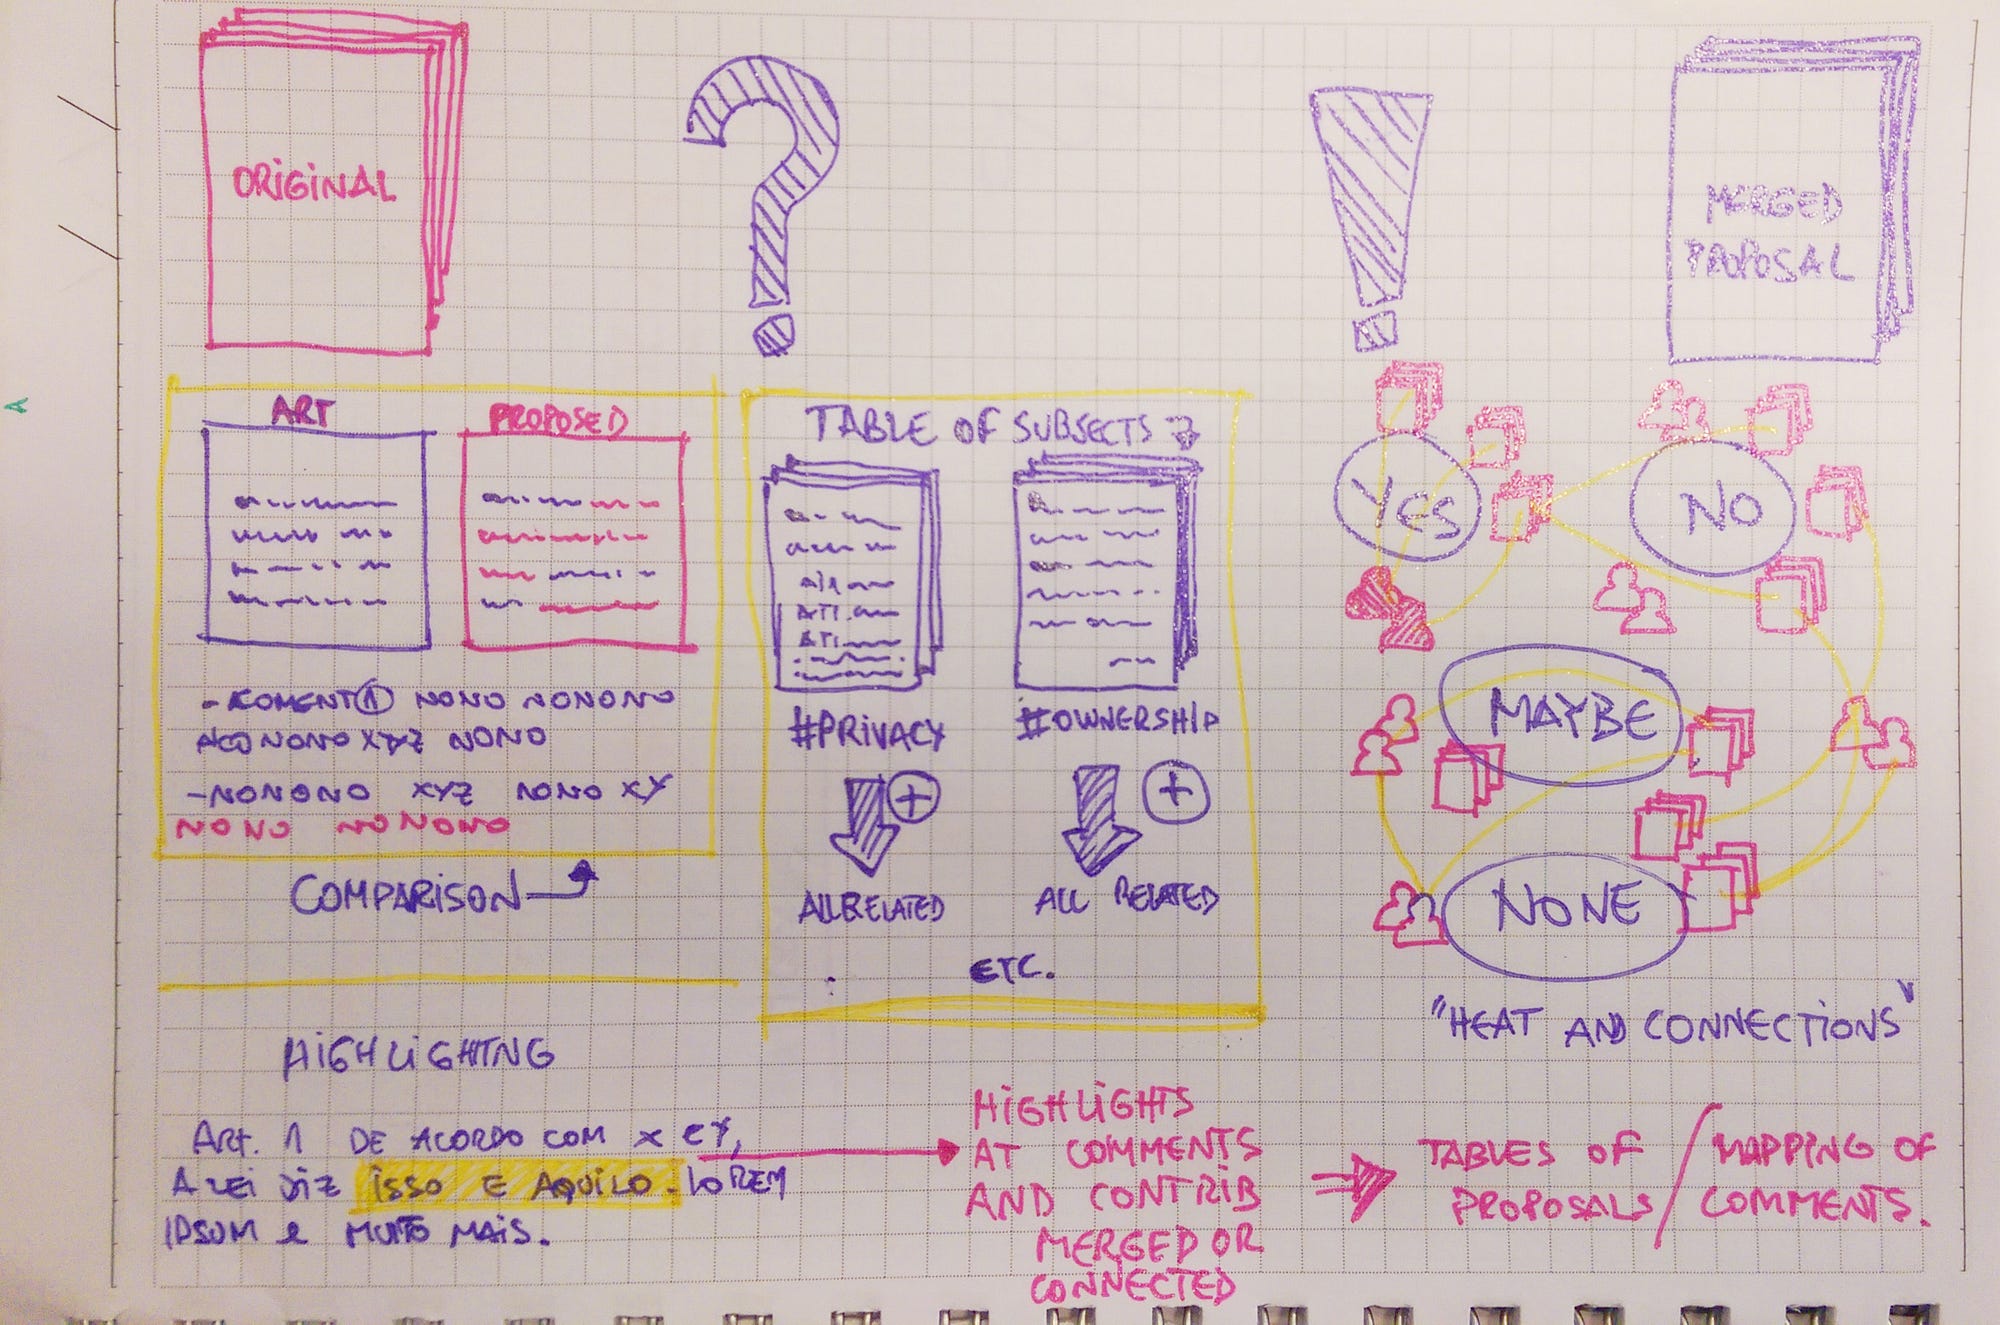 ORIGINAL
?
!
MERGED
PROPOSAL
ART
PROPOSED
-COMENT① NONO NONONO
NONO XYZ NONO
-NONONO XYZ NONO XY
NONO NONONO
COMPARISON
TABLE OF SUBSECTS
ART.
ART.
#PRIVACY
#OWNERSHIP
+
+
ALL RELATED
ALL RELATED
ETC.
YES
NO
MAYBE
NONE
"HEAT AND CONNECTIONS"
HIGHLIGHTNG
ART. 1 DE ACORDO COM X E Y,
A LEI DIZ ISSO E AQUILO. LOREM
IPSUM E MUITO MAIS.
HIGHLIGHTS
AT COMMENTS
AND CONTRIB
MERGED OR
CONNECTED
TABLES OF
PROPOSALS /
MAPPING OF
COMMENTS.